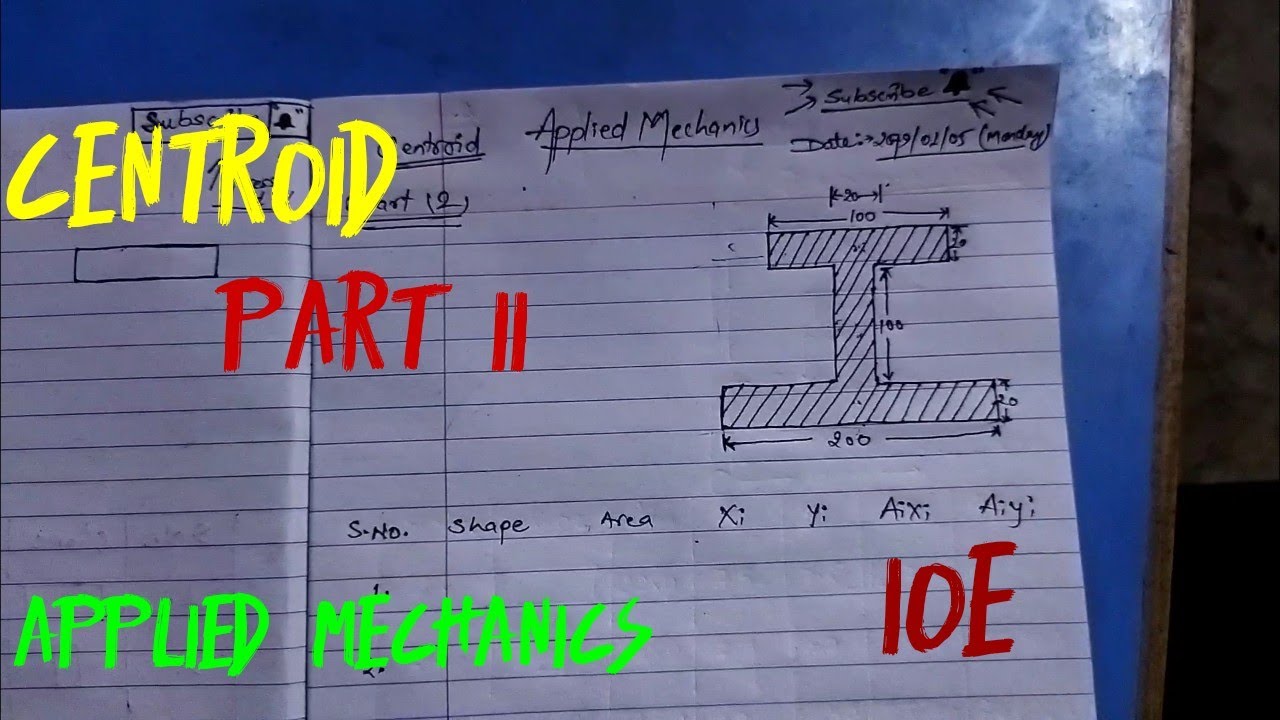 CENTROID
PART II
APPLIED MECHANICS
IOE
Applied Mechanics
Subscribe
Centroid
Part (2)
20
100
20
100
20
200
S.No. Shape Area Xi Yi AiXi Aiyi
1.
2.